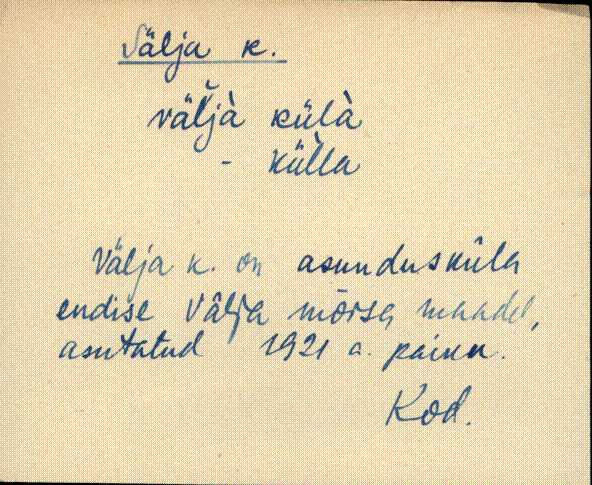 Välja k.
väľjà külà
- kül̀la
Välja k. on asundusküla
endise Välja mõisa maadel,
asutatud 1921 a. paiku.
Kod.